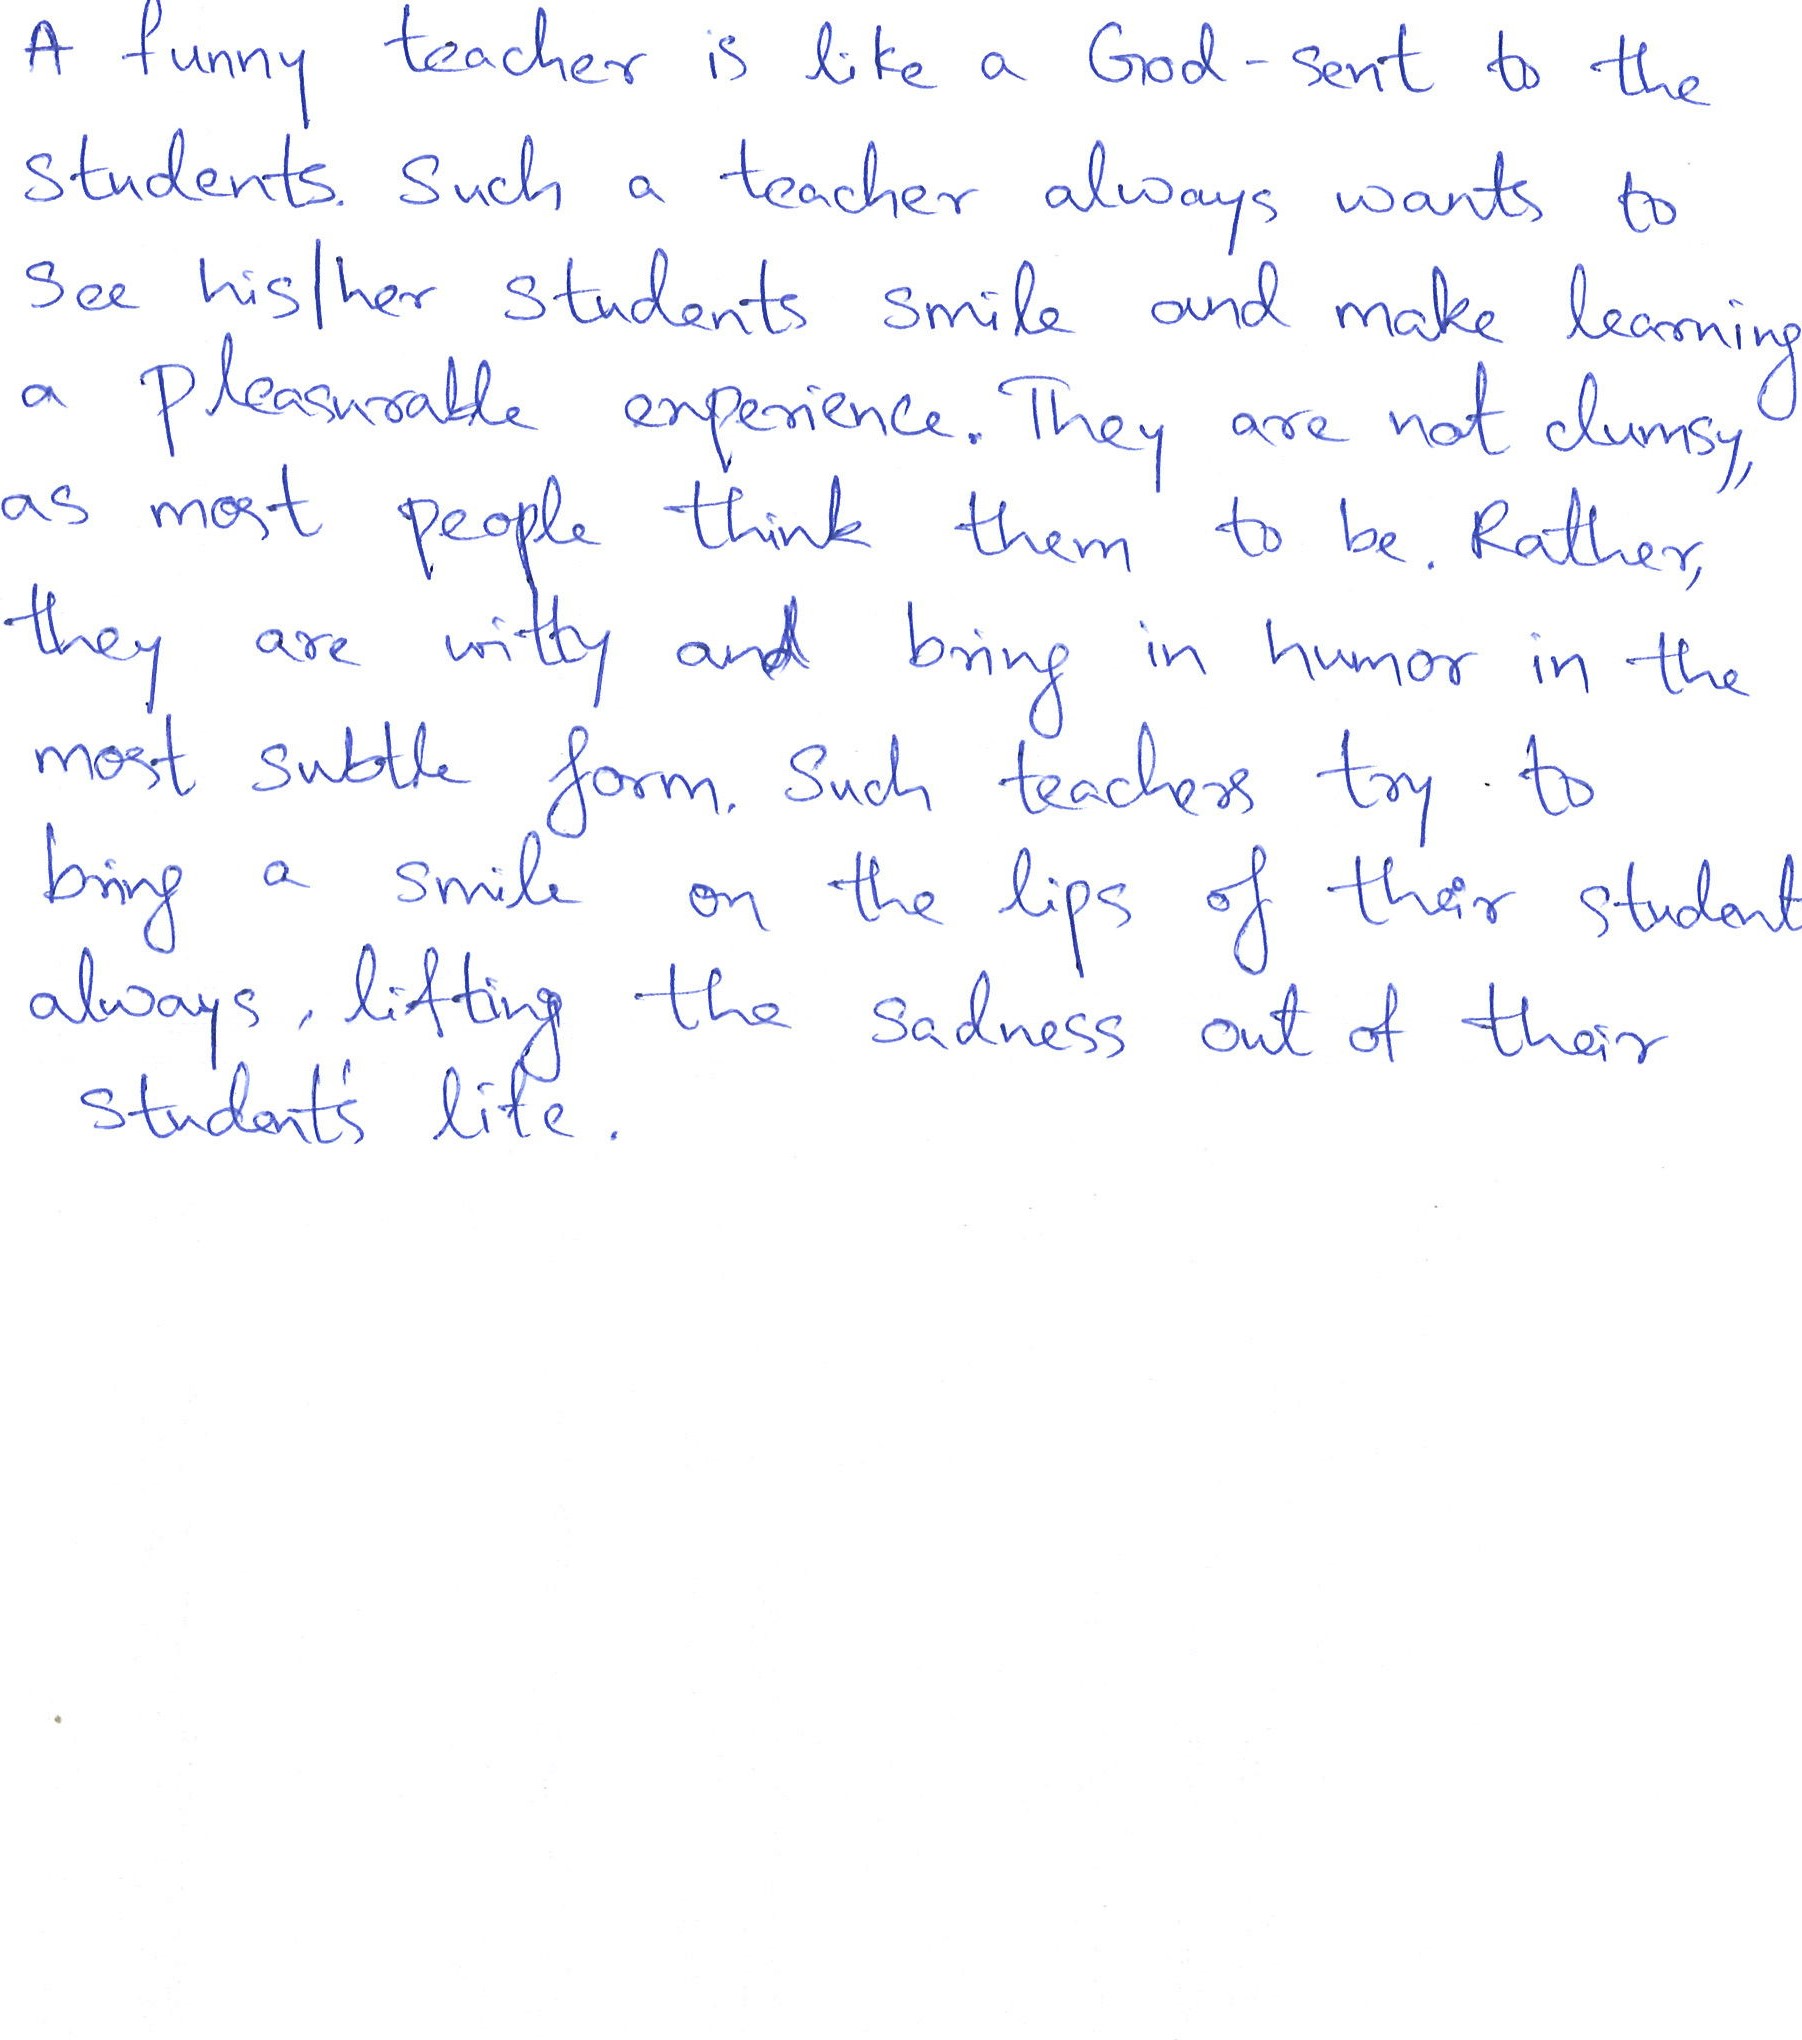 A funny teacher is like a God-sent to the
students. Such a teacher always wants to
see his/her students smile and make learning
a pleasurable experience. They are not clumsy,
as most people think them to be. Rather,
they are witty and bring in humor in the
most subtle form. Such teachers try to
bring a smile on the lips of their student
always, lifting the sadness out of their
student's life.